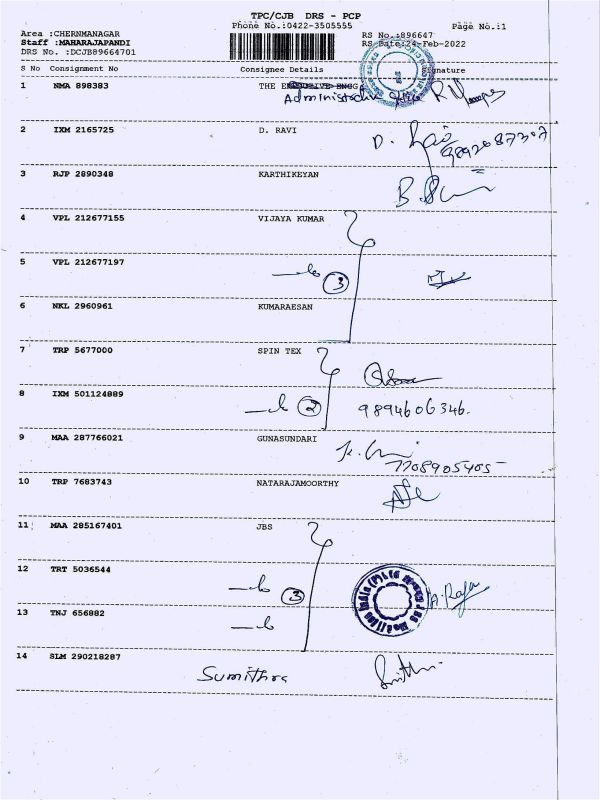 TPC/CJB DRS - PCP
Phone No.:0422-3505555
Page No.:1
Area :CHERNMANAGAR
RS No.:896647
Staff :MAHARAJAPANDI
RS Date:24-Feb-2022
DRS No. :DCJB89664701
S No Consignment No Consignee Details Signature
1 NMA 898383 THE
Administrative
2 IXM 2165725 D. RAVI
D.
9892087307
3 RJP 2890348 KARTHIKEYAN
4 VPL 212677155 VIJAYA KUMAR
5 VPL 212677197
3
6 NKL 2960961 KUMARAESAN
7 TRP 5677000 SPIN TEX
8 IXM 501124889
2 9894606346.
9 MAA 287766021 GUNASUNDARI
7708905405
10 TRP 7683743 NATARAJAMOORTHY
11 MAA 285167401 JBS
12 TRT 5036544
3
A. Raja
13 TNJ 656882
14 SLM 290218287
Sumithra